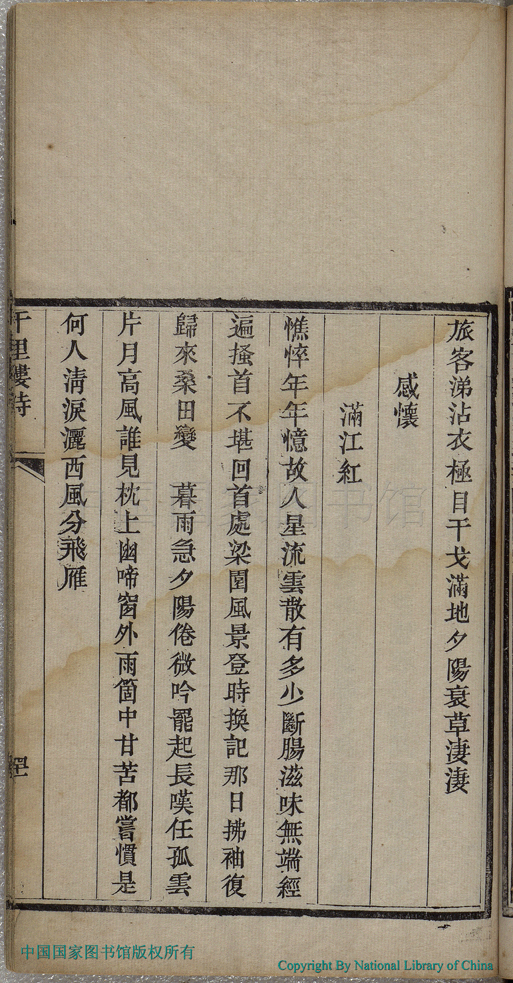 旅客涕沾衣極目干戈滿地夕陽衰草淒淒
感懷
滿江紅
憔悴年年憶故人星流雲散有多少斷腸滋味無端經
遍搔首不堪回首處梁園風景登時換記那日拂袖復
歸來桑田變　暮雨急夕陽倦微吟罷起長嘆任孤雲
片月高風誰見枕上幽啼窗外雨箇中甘苦都嘗慣是
何人清淚灑西風分飛雁
中国国家图书馆版权所有
Copyright By National Library of China